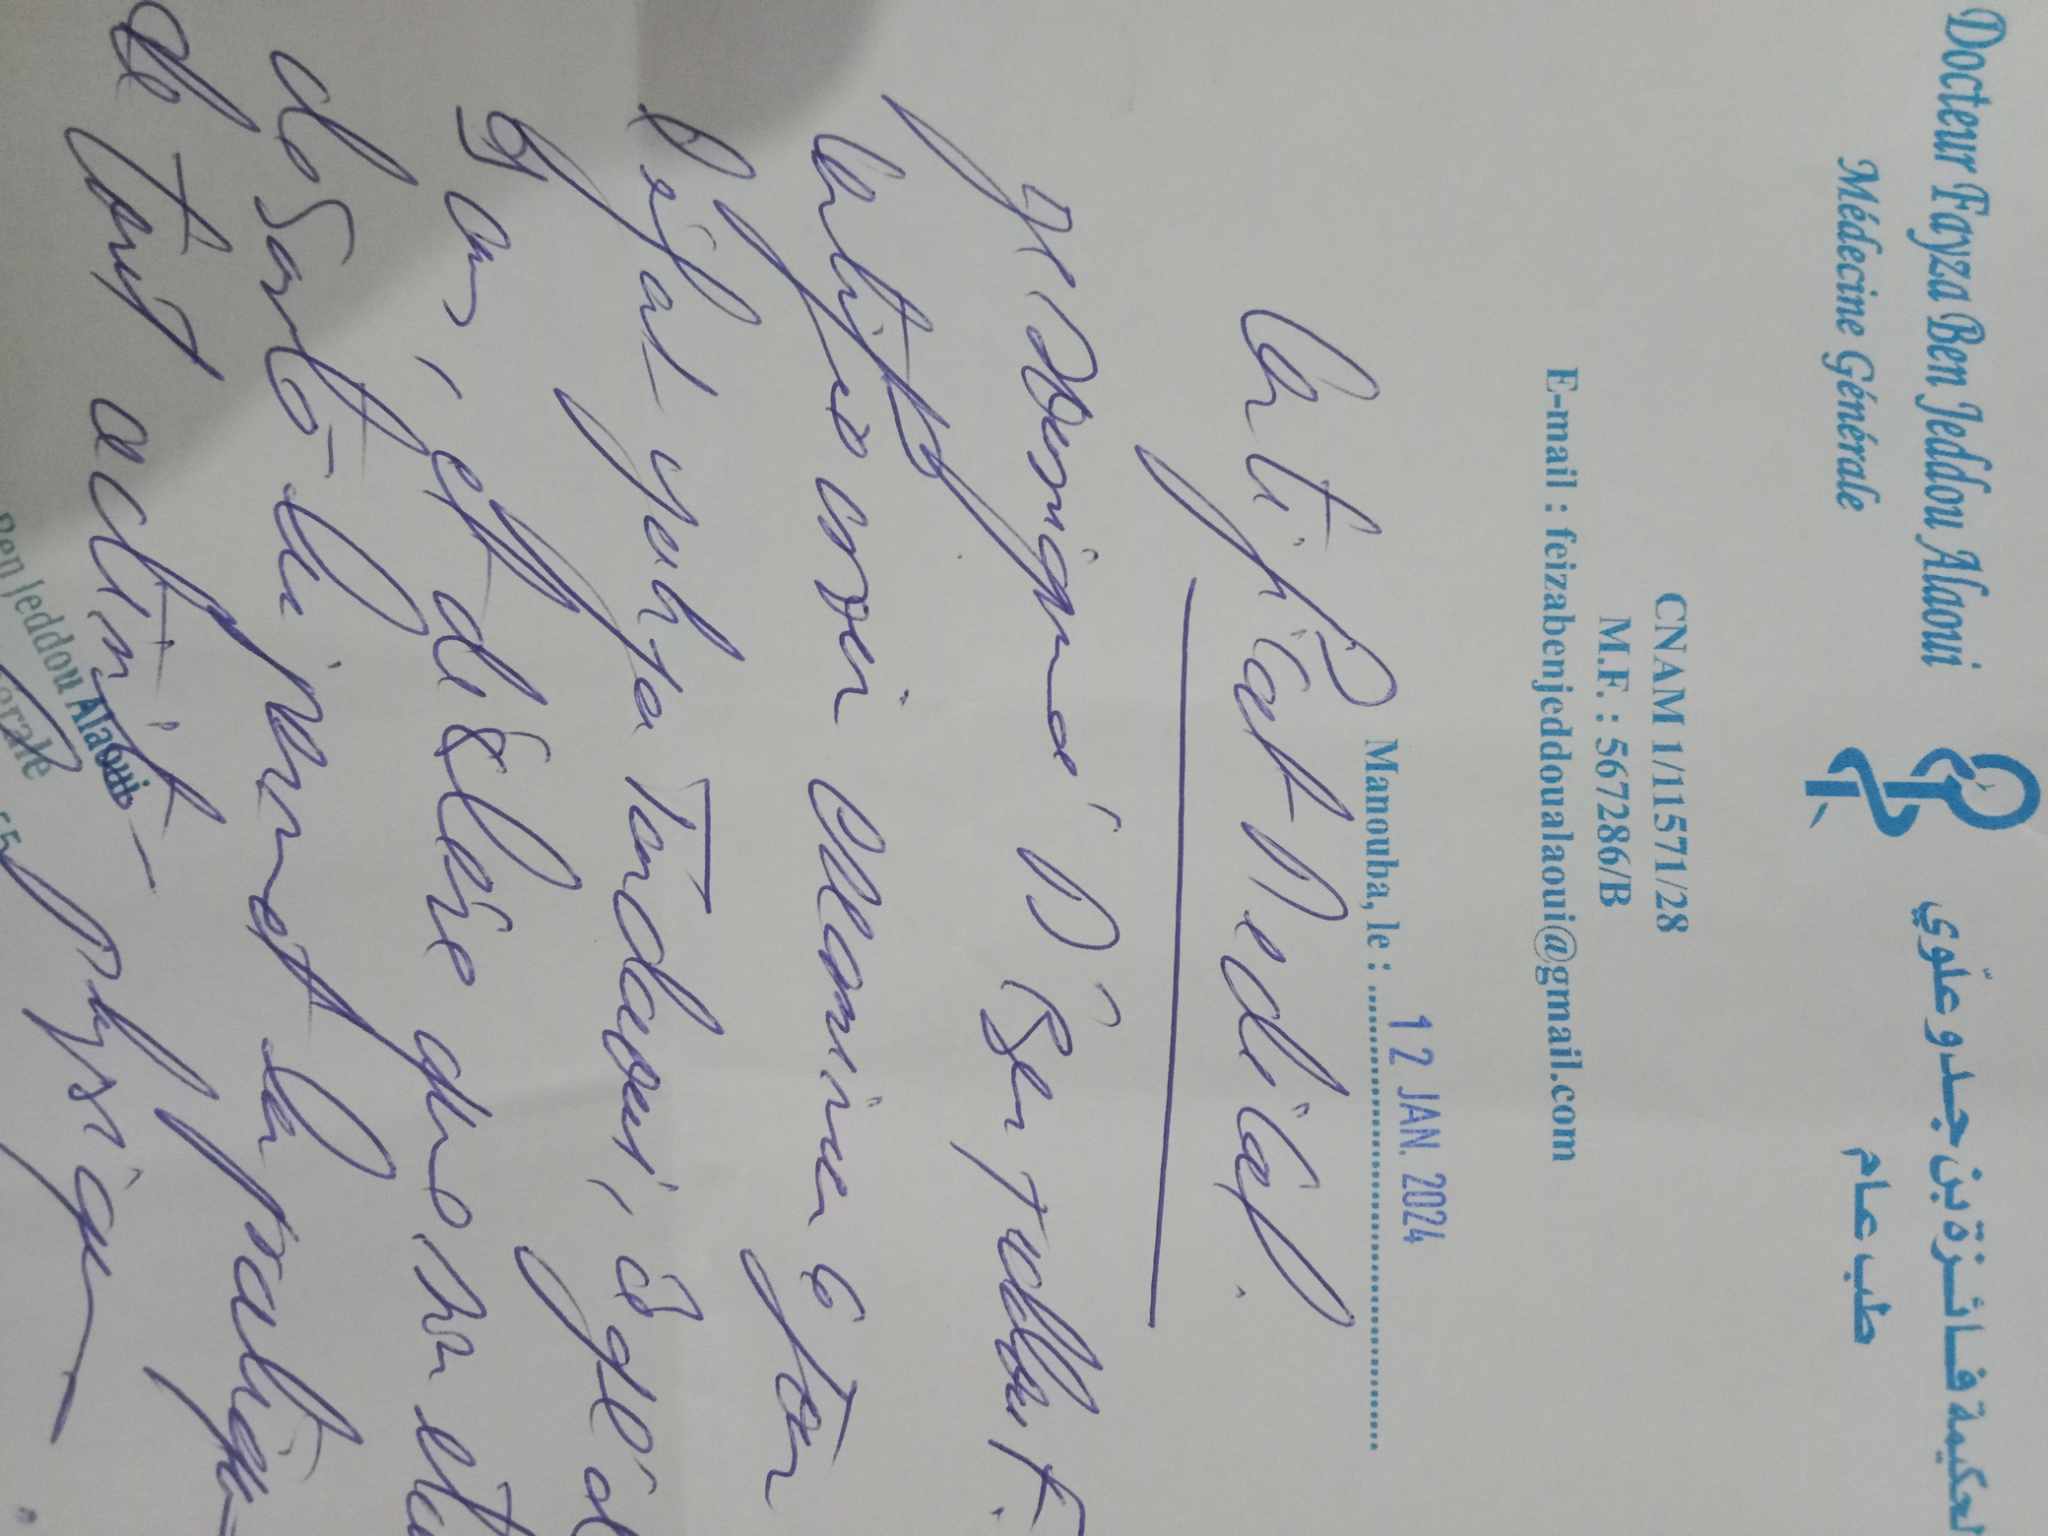 Docteur Fayza Ben Jeddou Alaoui
الحكيمة فائزة بن جدو علّوي
Médecine Générale
طب عام
CNAM 1/11571/28
M.F. : 567286/B
E-mail : feizabenjeddoualaoui@gmail.com
Manouba, le : 12 JAN. 2024
Certificat Médical
Je soussigné Dr Ben Jeddou F.
certifie avoir examiné ce jour
l'enfant yahya Tordaoui, âgé de
9 ans, et déclare que son état
de santé lui permet la pratique
de tout activité physique
Ben Jeddou Alaoui